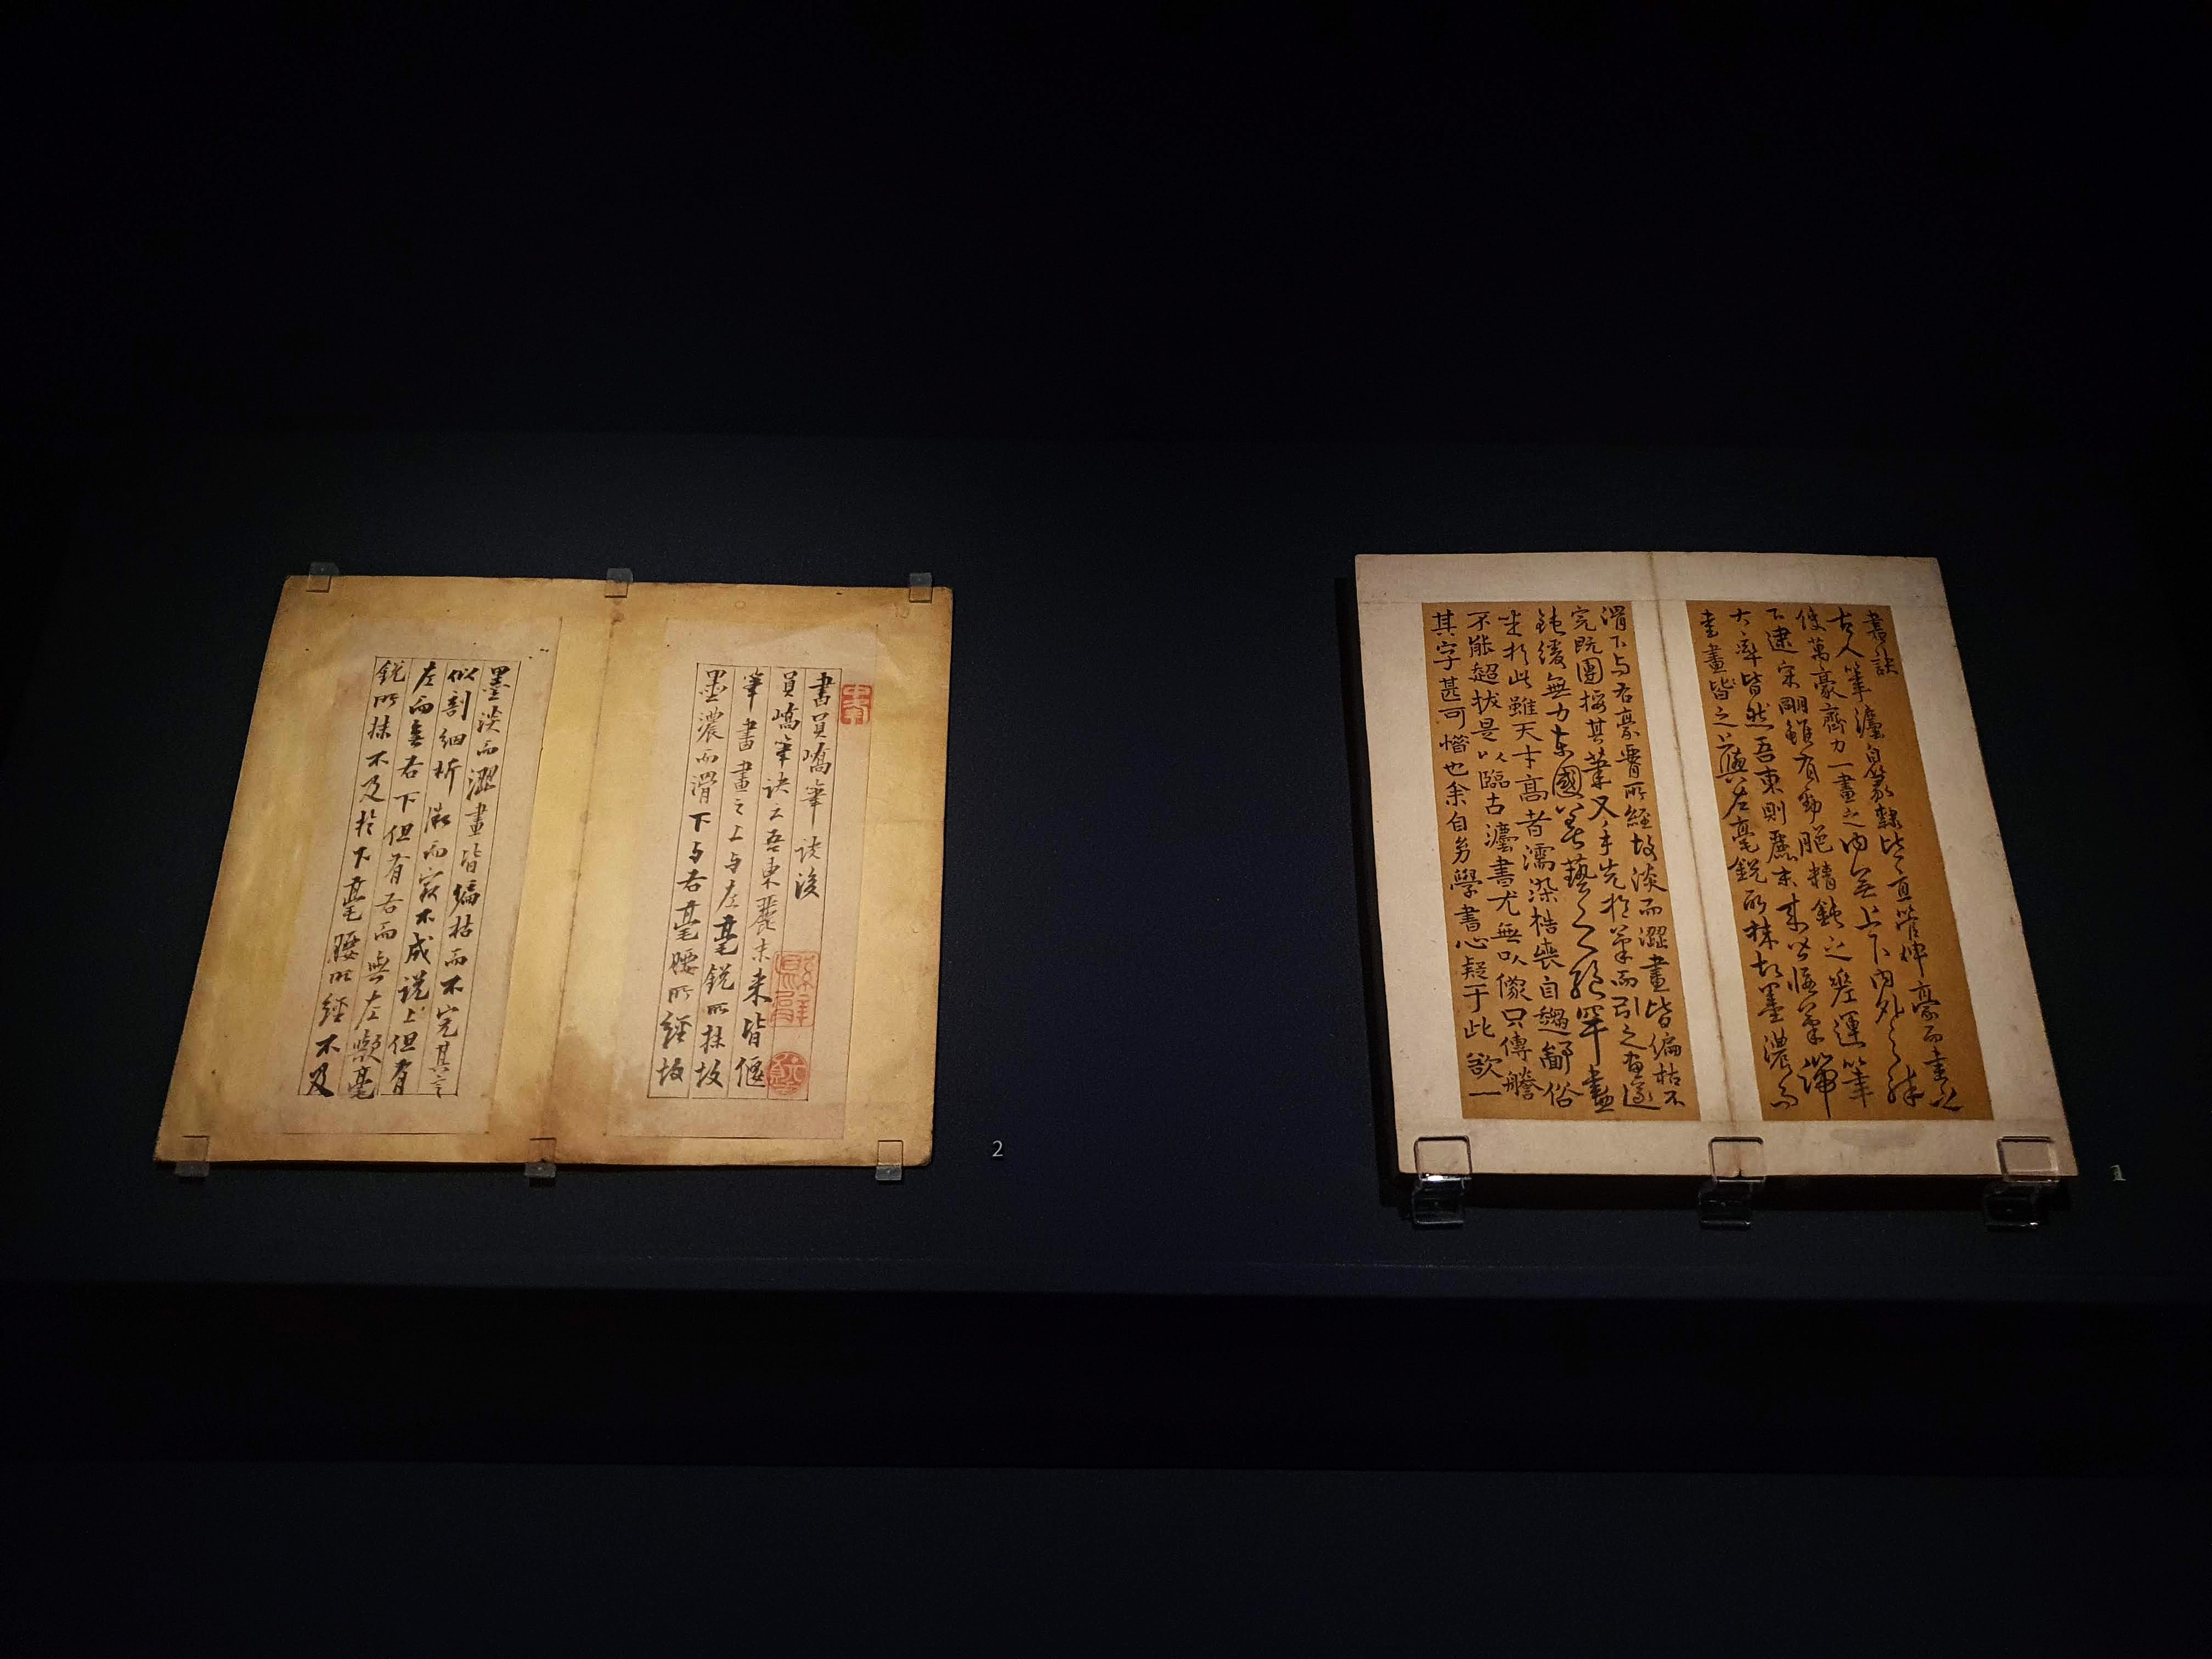 書訣
古人筆灋自篆隸皆直管伸豪而書之
使萬豪齊力一畫之內無上下內外之殊
下逮宋明雖有勁脆精鈍之差運筆
大率皆然吾東則麗末來皆偃筆端而
書畫皆之上與左毫銳所抹故墨濃而
滑下与右豪要所經故淡而澀畫皆偏枯不
完旣團挼其葉又手先於筆而引之畫遂
鈍緩無力東國藝之絶罕
坐於此雖天才高者濡染梏喪自趨鄙俗
不能超拔是以臨古灋書尤無以儌只傳謄
其字甚可惜也余自幼學書心疑于此欲一
1
書員嶠筆訣後
員嶠筆訣云吾東麗末來皆偃
筆書畫之上与左毫銳所抹故
墨濃而滑下与右毫腰所經故
墨淡而澀畫皆偏枯而不完其言
似剖細析微而㝡不成說上但有
左而無右下但有右而無左歟毫
銳所抹不及於下毫腰所經不及
2